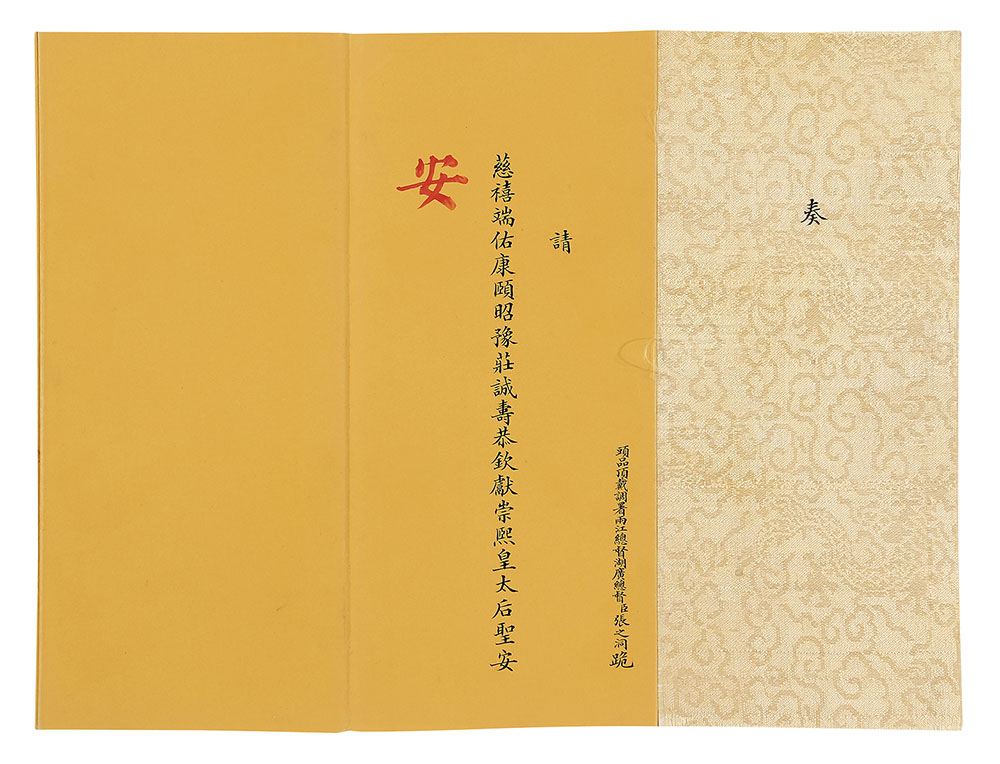 奏
頭品頂戴調署兩江總督湖廣總督臣張之洞跪
請
慈禧端佑康頤昭豫莊誠壽恭欽獻崇熙皇太后聖安
安